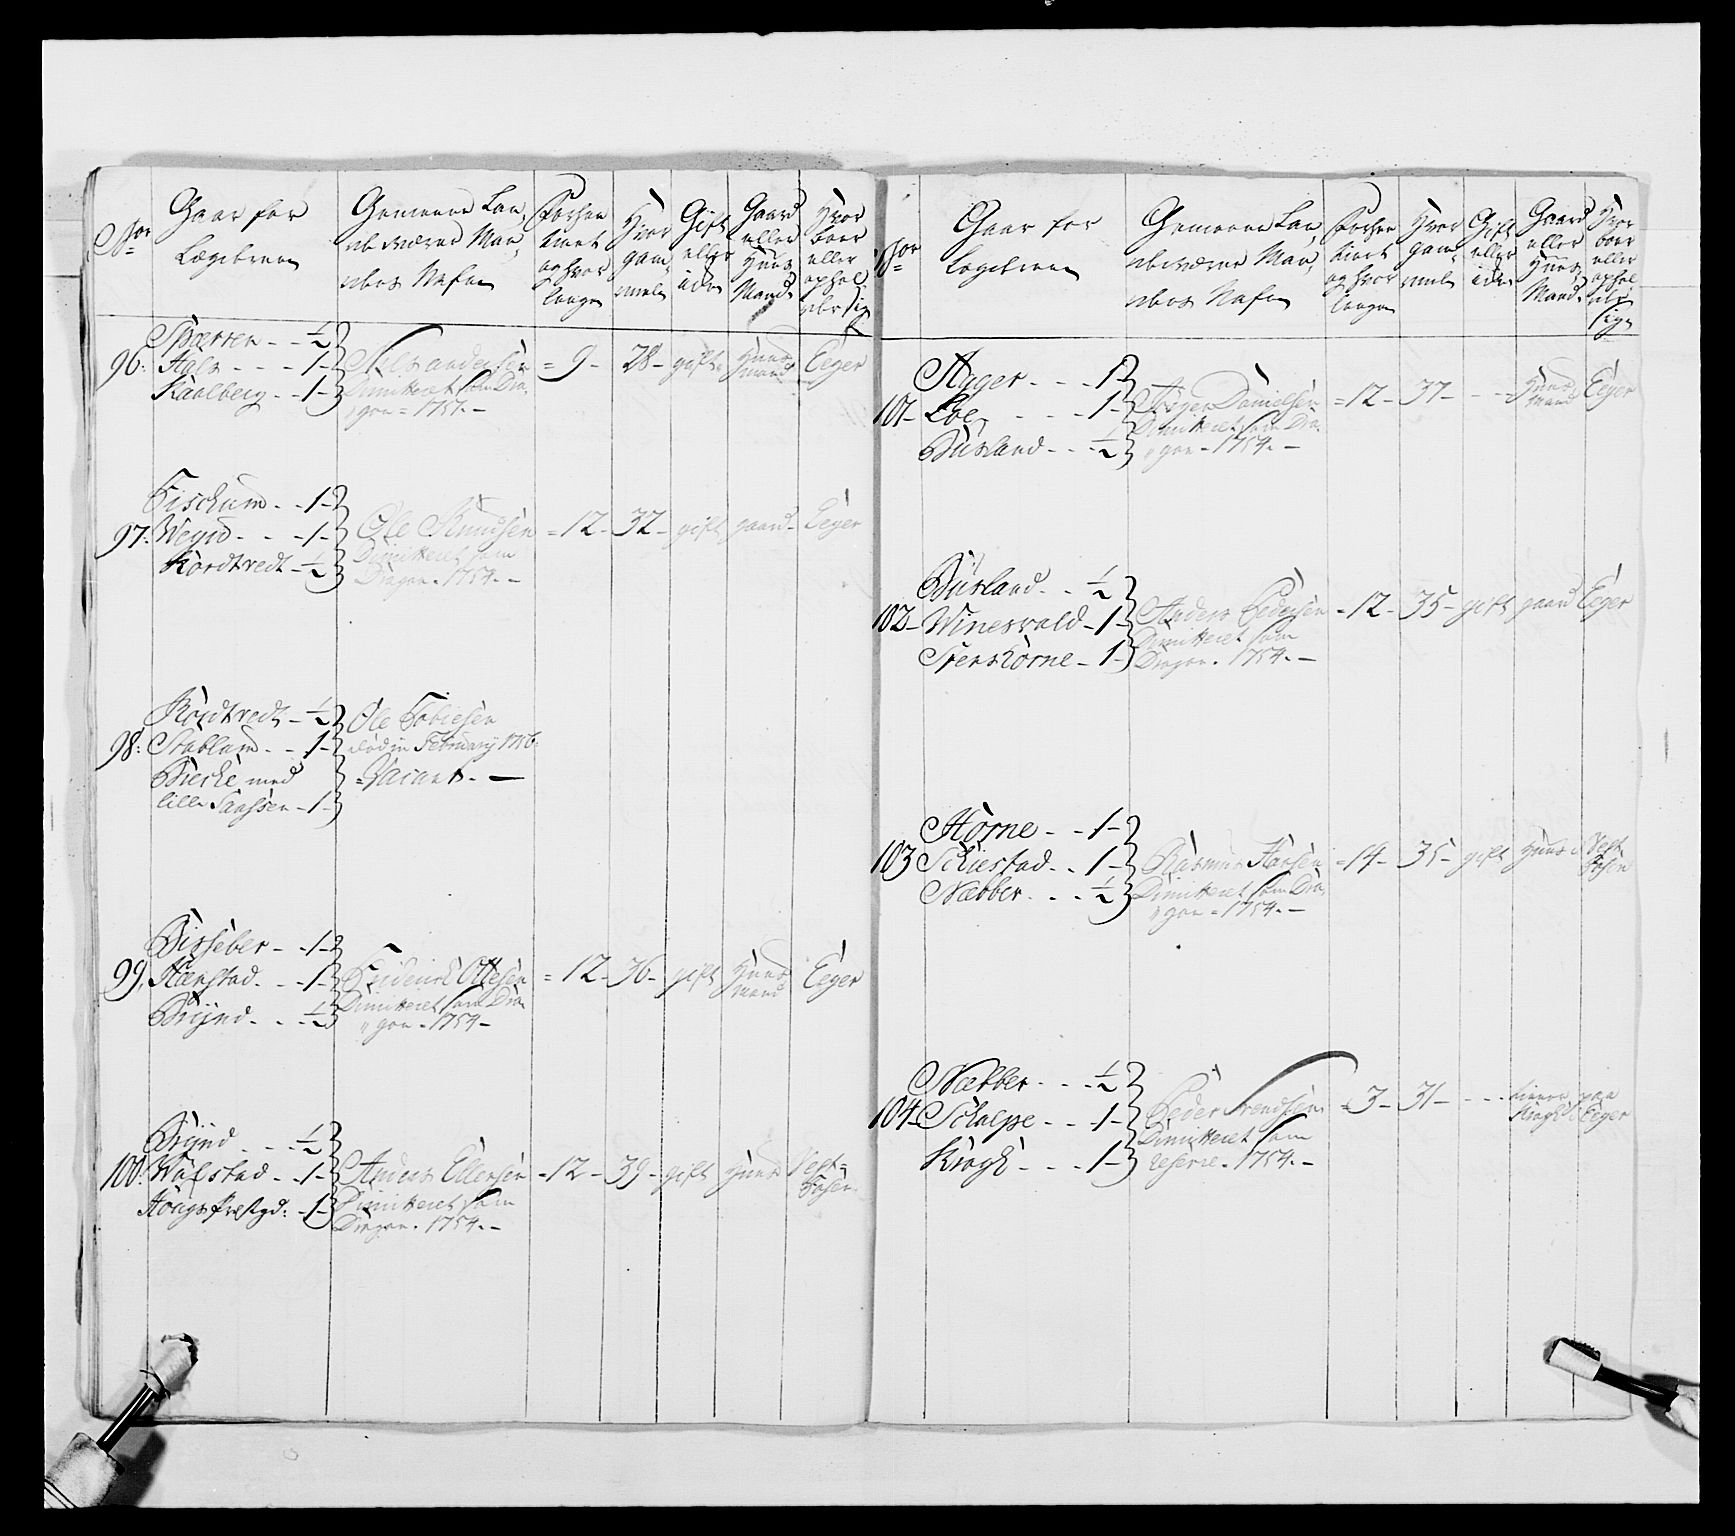 No
Gaar for
Lægderne
Gemeene Lan,
deværne Man,
des Nafn
Forhen
tient
og hvor
længe
Hvor
gam,
mel
Gift
eller
iche
Gaard
eller
Huus
Mand
Hvor
boer
eller
ophol,
der sig
96:
Sperren - - ½
Hals - - - 1 -
Kaalberg - - 1 -
Nels andersen
Dimitteret som Dra,
gon = 1757. -
= 9 - 28 - gift - Huus mand Eeger
97:
Fischum - - 1 -
Wegid - - - 1 -
Kordtvedt - ½
Ole Knudsen
Dimitteret som
Dragon. 1754. -
= 12 - 32 - gift gaard - Eeger
98:
Kordtvedt - ½
Stablum - - 1 -
Biercke med
lille Saassen - 1 -
Ole Tobiesen
død in February 1756:
= Vacant. -
99.
Bisseber - - 1 -
Hærstad - - - 1 -
Brynd - - - ½
Friderich Ottesen
Dimitteret som Dra,
gon = 1754 -
= 12 - 36 - gift Huus mand Eeger
100:
Brynd - - - ½
Wolstad - - 1 -
Hougs Præstgd: - 1 -
Anders Ellersen
Dimitteret som
Dragon. 1754. -
= 12 - 39 - gift Huus Vest=
Fosen
No
Gaar for
Lægderne
Gemeene Lan,
deværne Man,
des Nafn
Forhen
tient
og hvor
længe
Hvor
gam,
mel
Gift
eller
iche
Gaard
eller
Huus
Mand
Hvor
boer
eller
ophol,
der
sig
101 -
Ager - - - 1
Loe - - - 1 -
Busland - - ½
Jørgen Danielsen
Dimitteret som Dra,
gon = 1754. -
= 12 - 37 - - - Huus mand Eeger
102 -
Busland - - ½
Winesvold - 1 -
Stenshorne - 1 -
Anders Pedersen
Dimitteret som
Dragon. 1754. -
= 12 - 35 - gift gaard Eeger
103
Horne - - 1 -
Schiestad - - 1 -
Næbber - - - ½
Rasmus Hansen
Dimitteret som Dra,
gon = 1754. -
= 14 - 35 - gift Huus Vest
Fosen
104 -
Næbber - - - ½
Schalpe - - 1 -
Krogh - - - 1 -
Peder Svendsen
Dimitteret som
reserve. 1754. -
= 3 - 31 - - - tienner paa
Krogh Eeger